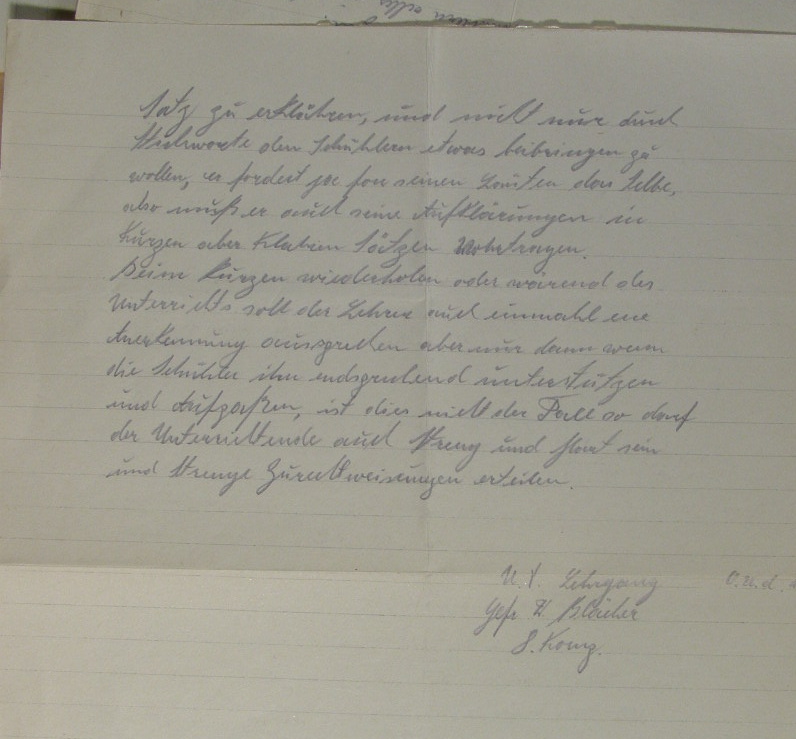 Satz zu erklähren, und nicht nur durch
Stichworte den Schühlern etwas beibringen zu
wollen, er fordert ja fon seinen Leuten das Selbe,
also muß er auch seine Aufklärungen in
Kurzen aber Klahren Sätzen Vohrtragen.
Beim kurzen wiederholen oder wärend des
Unterrichts soll der Lehrer auch einmahl ene
Anerkennung aussprechen aber nur dann wenn
die Schühler ihn endsprechend unterstützen
und Aufpaßen, ist dies nicht der Fall so darf
der Unterrichtende auch Streng und Hart sein
und Strenge Zurechtweisungen erteilen.
Lehrgang O.U.d.
Gefr H. Bläicher
8. Komp.